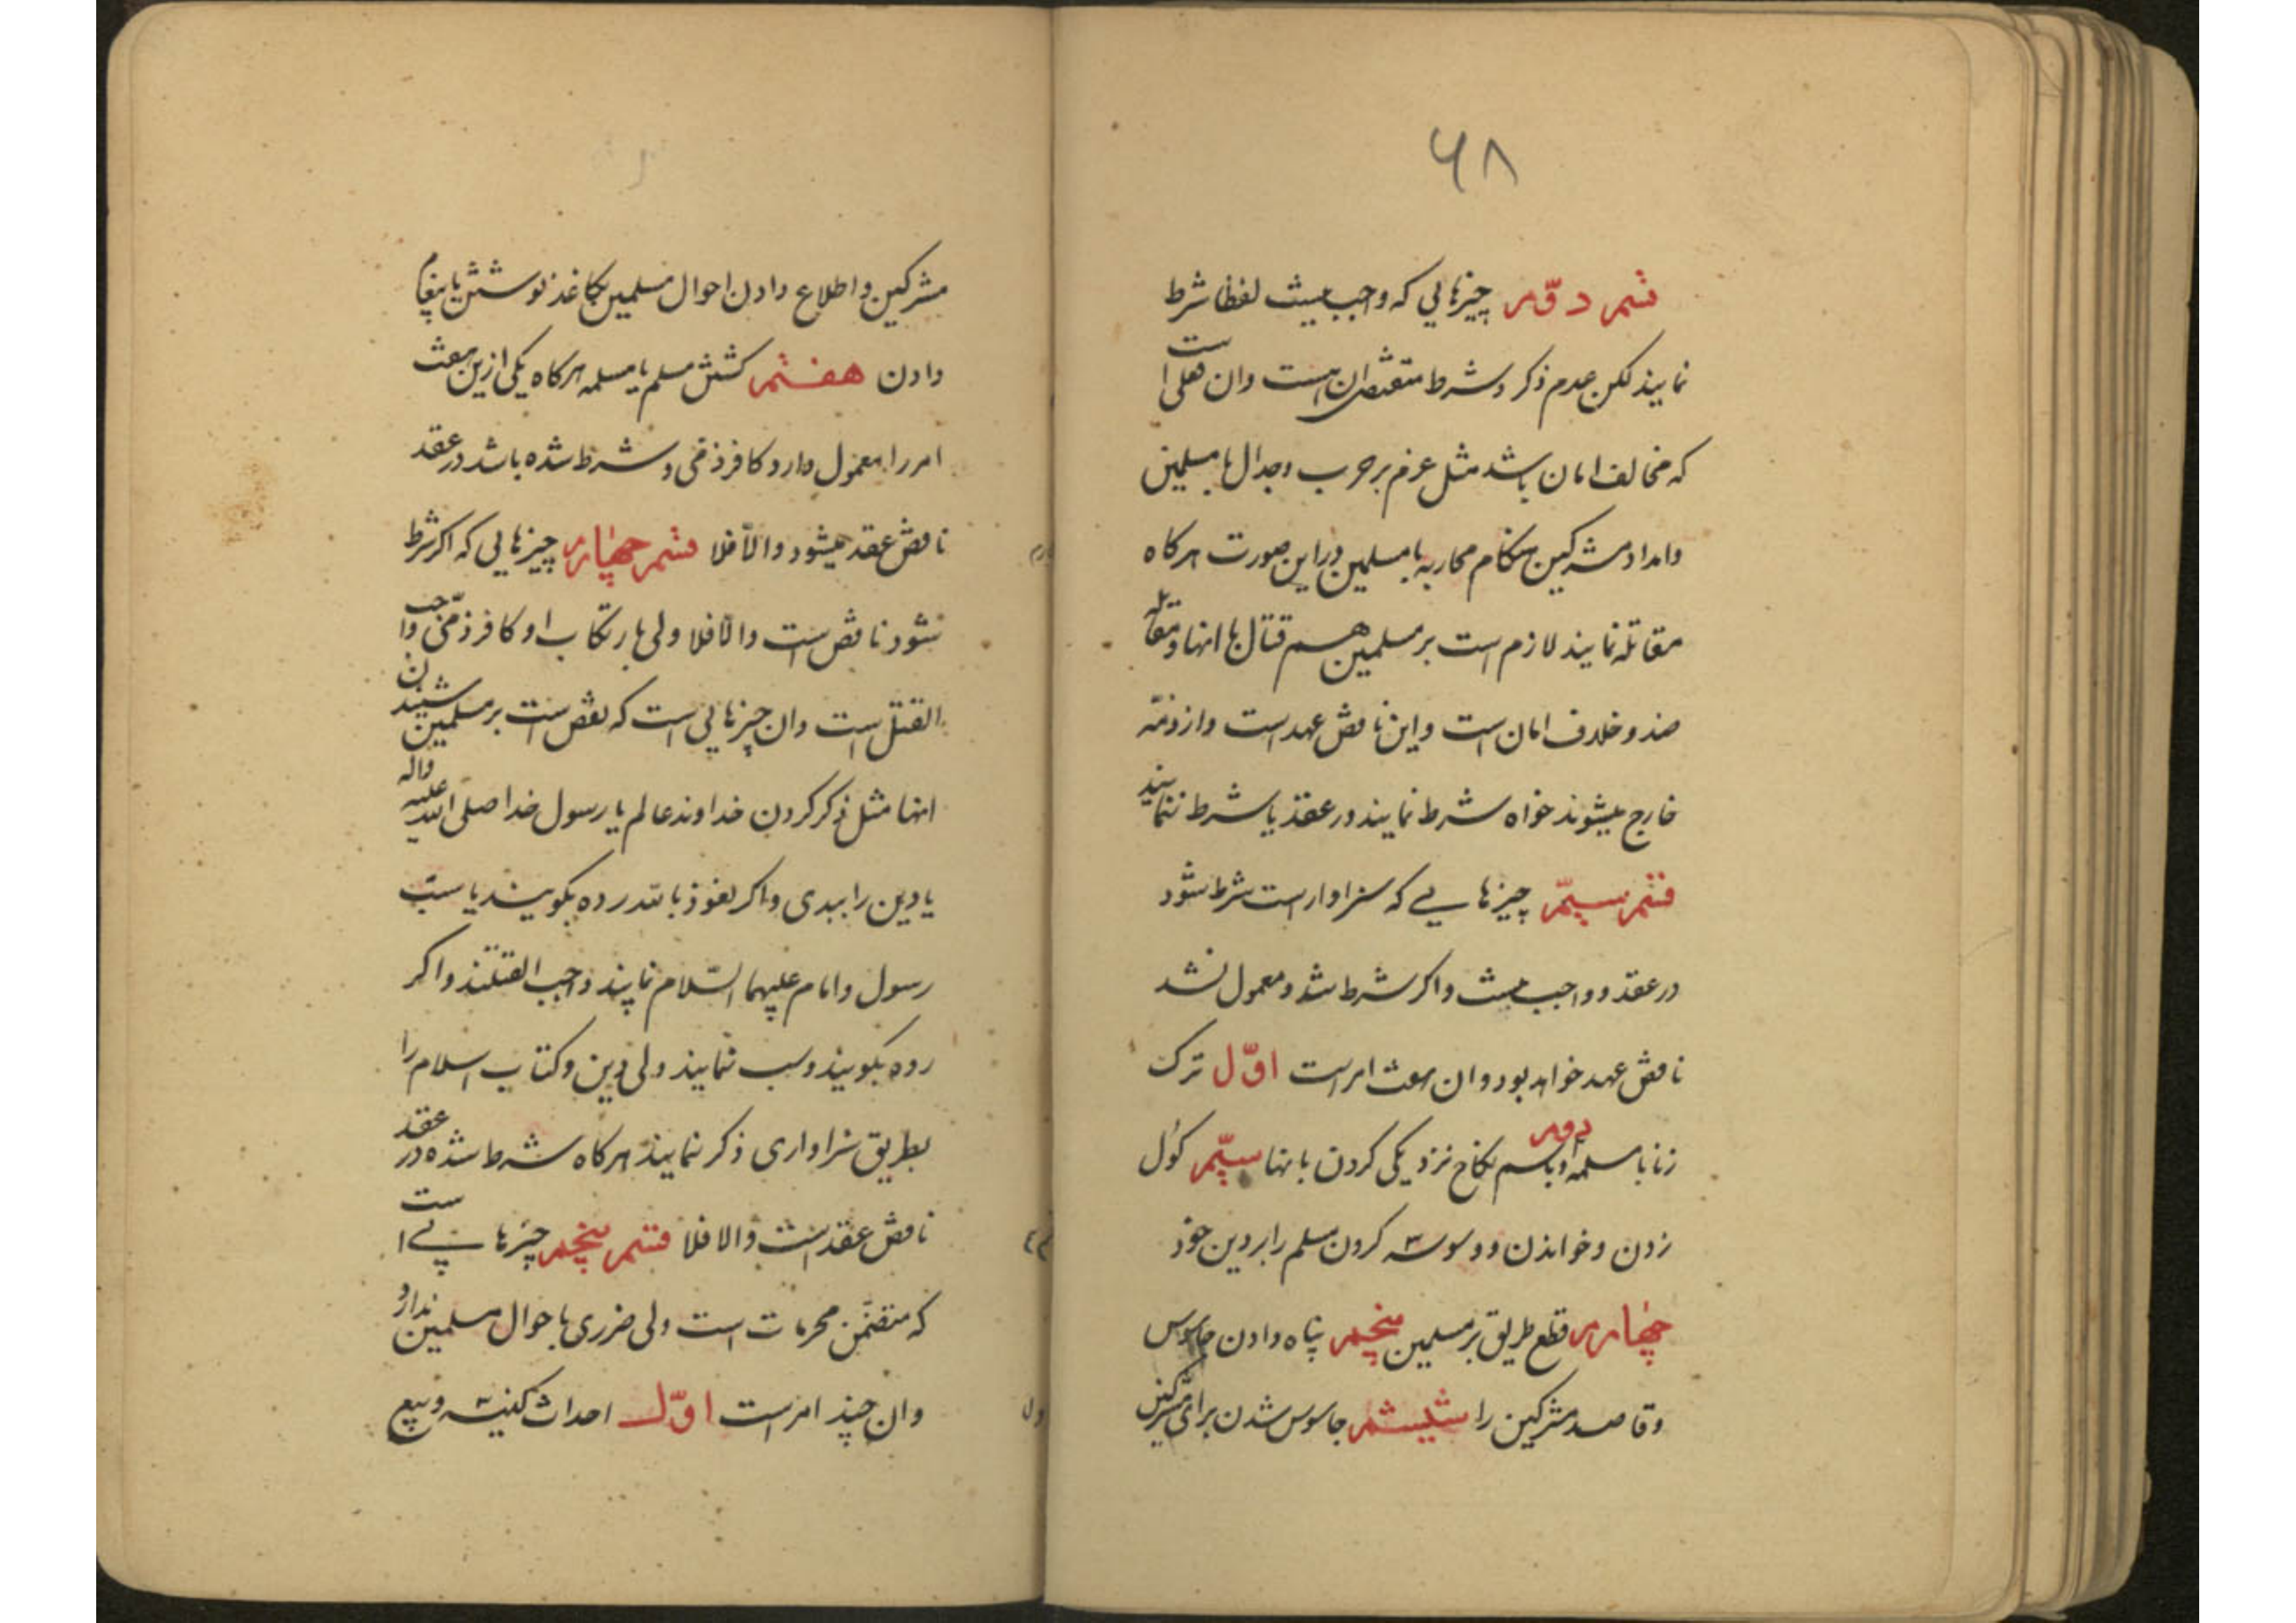 ۶۸
قسم دوّم چیزهایی که واجب نیست لفظا شرط
نمایند لکن عدم ذکر و شرط متقضی ان هست وان فعلی است
که مخالف امان باشد مثل عزم بر حرب وجدال با مسلمین
وامداد مشرکین هنکام محاربه با مسلمین در این صورت هرکاه
مقاتله نمایند لازم است بر مسلمین هم قتال با انها ومقاتله
ضد وخلاف امان است واین ناقض عهد است واز ذمّه
خارج میشوند خواه شرط نمایند در عقد یا شرط ننمایند
قسم سیّم چیزهایی که سزاوار است شرط شود
در عقد و واجب نیست واکر شرط شد ومعمول نشد
ناقض عهد خواهد بود وان هفت امر است اوّل ترک
زنا با مسلمه دوم وباسم نکاح نزدیکی کردن بانها سیّم کول
زدن وخواندن ووسوسه کردن مسلم را بر دین خود
چهارم قطع طریق بر مسلمین پنجم پناه دادن جاسوس
وقاصد مشرکین را ششم جاسوس شدن برای مشرکین
مشرکین واطلاع دادن احوال مسلمین بکاغذ نوشتن یا پیغام
دادن هفتم کشتن مسلم یا مسلمه هرکاه یکی ازین هفت
امر را معمول دارد کافر ذمّی و شرط شده باشد در عقد
ناقض عقد میشود والّا فلا قسم چهارم چیزهایی که اکر شرط
شود ناقض است والّا فلا ولی بارتکاب او کافر ذمّی واجب
القتل است وان چیزهایی است که نقص است بر مسلمین شنیدن
انها مثل ذکر کردن خداوند عالم یا رسول خدا صلی الله علیه واله
یا دین را ببدی واکر نعوذ بالله رده بکویند یا سبّ
رسول وامام علیهما السّلام نمایند واجب القتلند واکر
رده بکویند وسب ننمایند ولی دین وکتاب اسلام را
بطریق سزاواری ذکر ننمایند هرکاه شرط شده در عقد
ناقض عقد است والا فلا قسم پنجم چیزهایی است
که متضمّن محرمات است ولی ضرری باحوال مسلمین ندارد
وان چند امر است اوّل احداث کنیسه وبیع